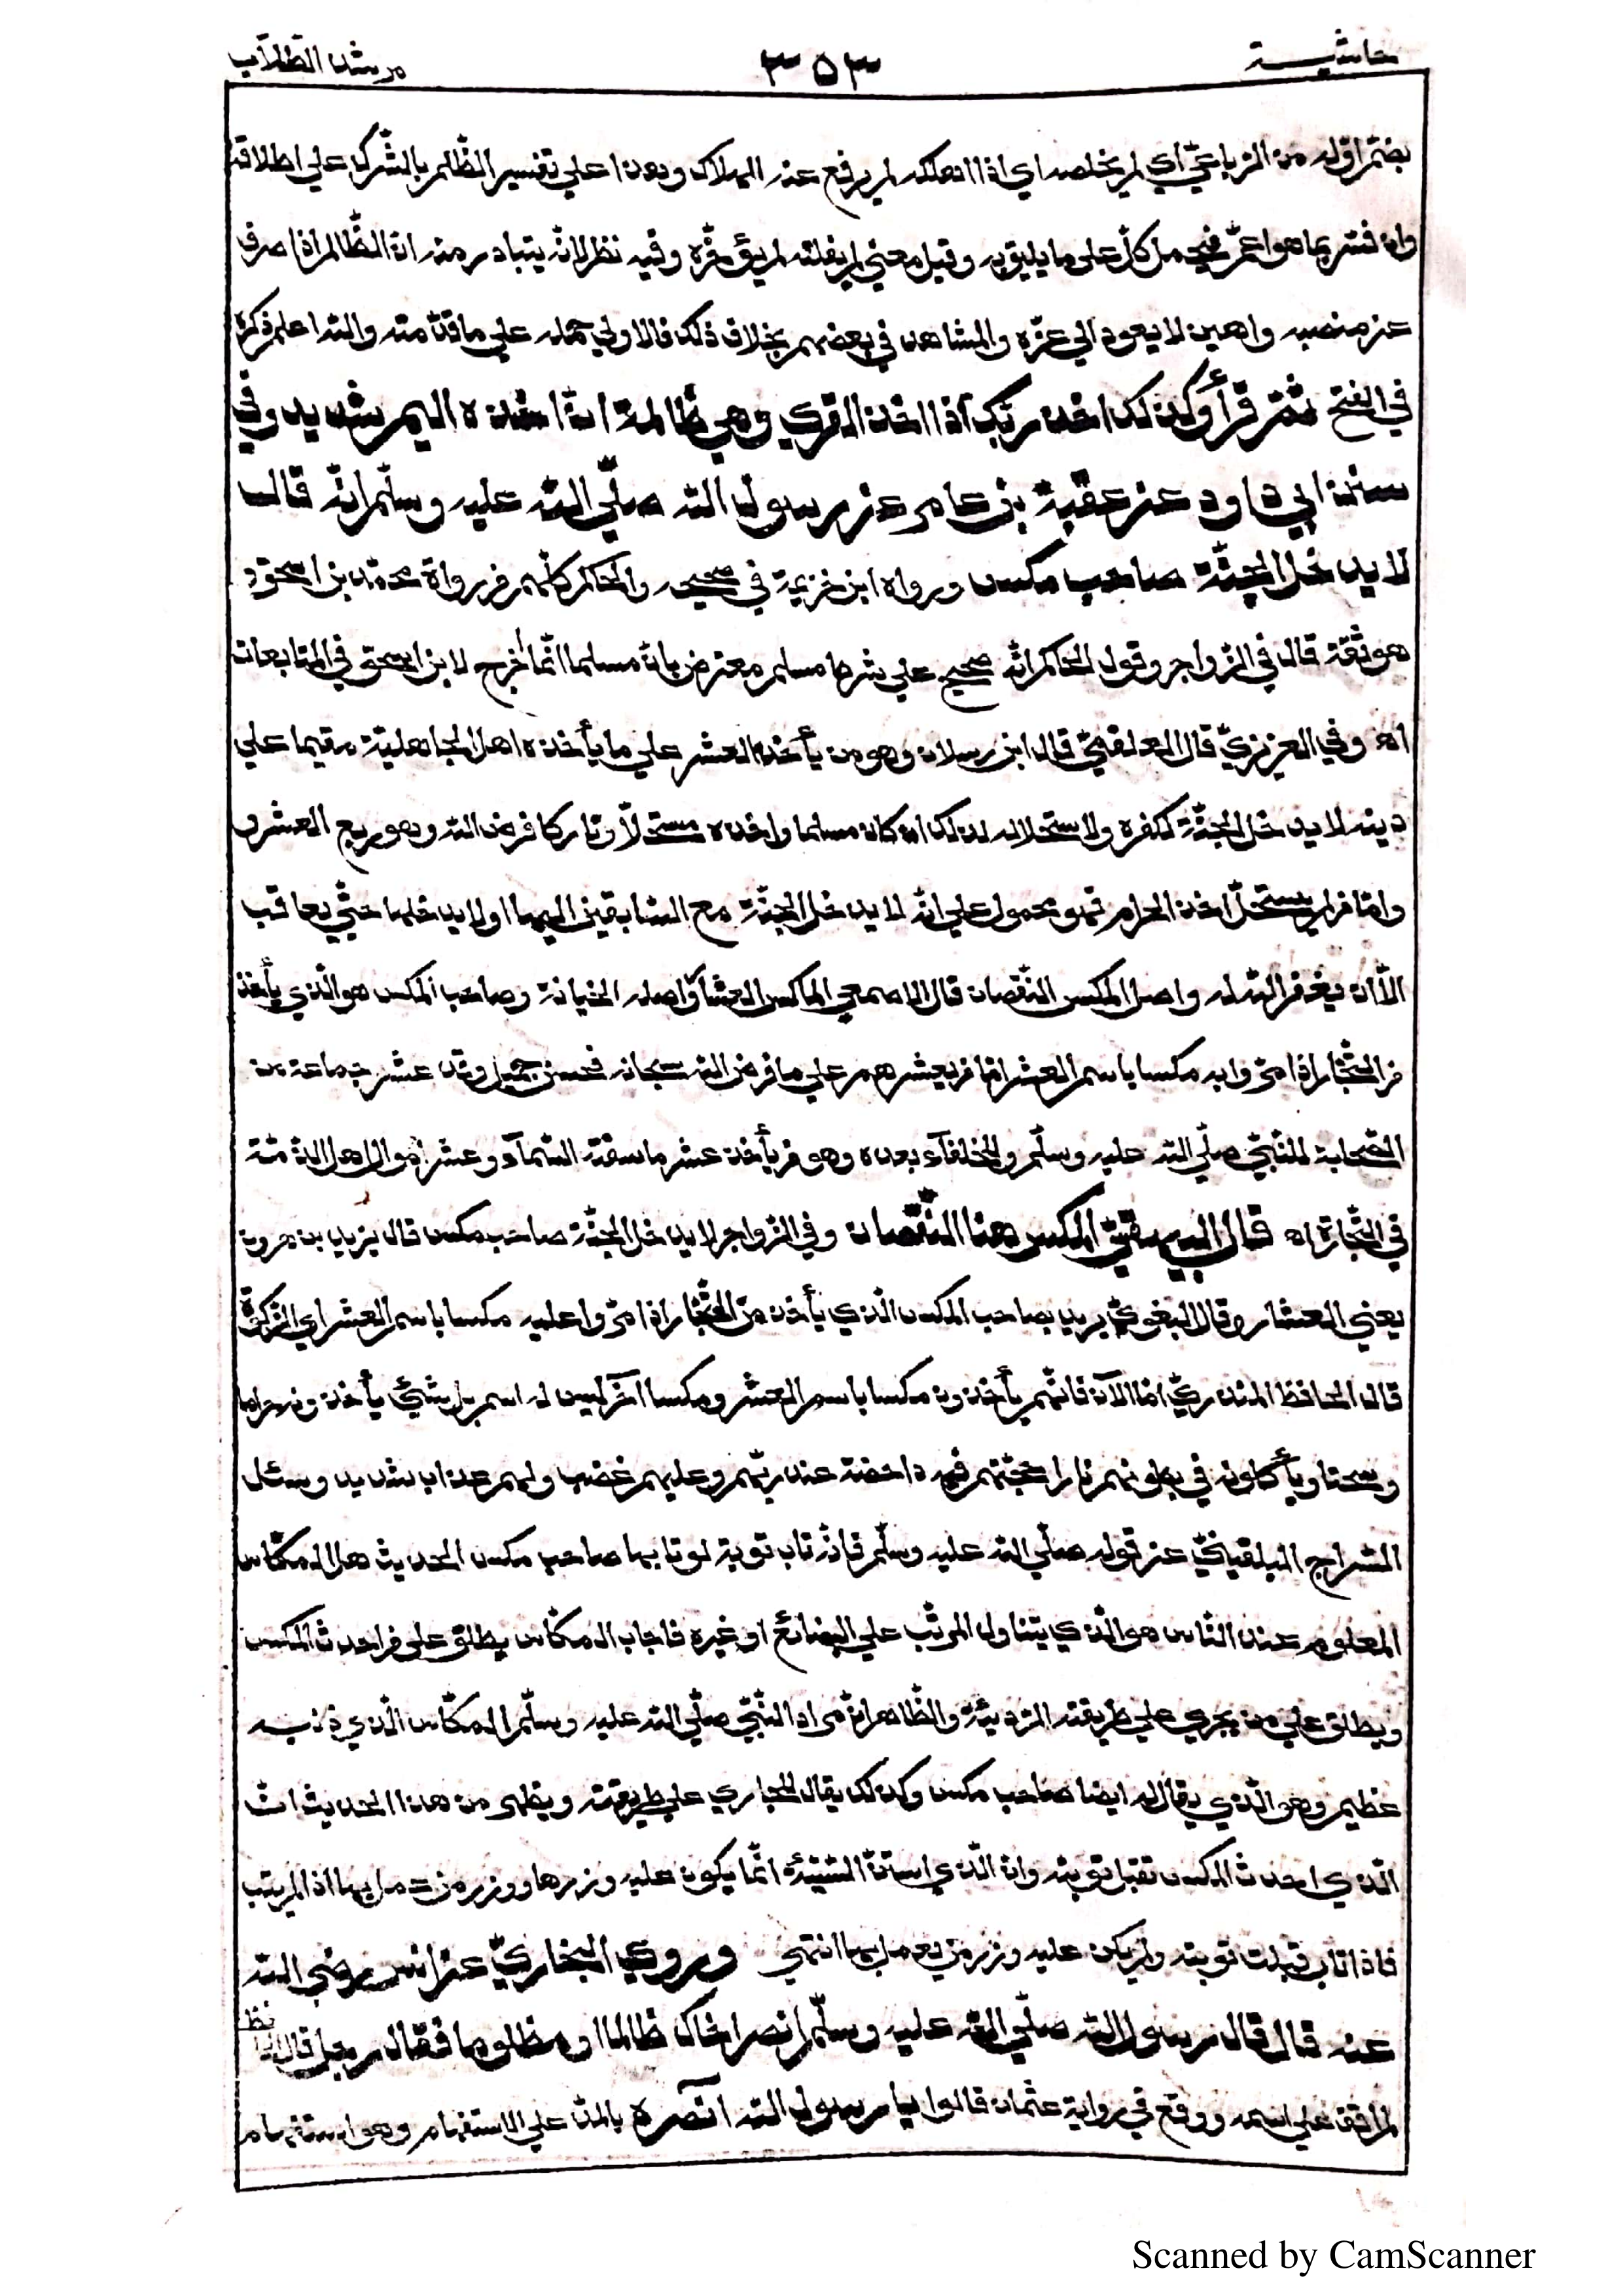 حاشيــة ٣٥٣ مرشد الطلاب
بضمّ اوّله من الرّباعيّ اي لم يخلصه اي اذا اهلكه لم يرفع عنه الهلاك وهذا علي تفسير الظّالم بالشّرك علي اطلاقه
وان فسّر بما هو اعمّ فيحمل كلّ علي ما يليق به وقيل معني لم يفلته لم يؤخّره وفيه نظر لانّه يتبادر منه انّ الظّالم اذا صرف
عن منصبه واهين لا يعود الي عزّه والمشاهد في بعضهم بخلاف ذلك فالاولي حمله علي ما قدّمته والله اعلم ذكره
في الفتح ثمّ قرأ وكذلك اخذ ربّك اذا اخذ القري وهي ظالمة انّ اخذه اليم شديد وفي
سنن ابي داود عن عقبة بن عامر عن رسول الله صلّي الله عليه وسلّم انّه قال
لا يدخل الجنّة صاحب مكس ورواه ابن خزيمة في صحيحه والحاكم كلّهم من رواة محمّد بن اسحق و
هو ثقة قال في الزّواجر وقول الحاكم انّه صحيح علي شرط مسلم معترض بانّ مسلما انّما اخرج لابن اسحق في المتابعات
اه وفي العزيزيّ قال العلقميّ قال ابن رسلان وهو من يأخذ العشر علي ما يأخذه اهل الجاهليّة مقيما علي
دينه لا يدخل الجنّة لكفره ولاستحلاله لذلك ان كان مسلما واخذه مستحلّا وتاركا فرض الله وهو ربع العشر
وامّا من لم يستحلّ اخذ الحرام فهو محمول علي انّه لا يدخل الجنّة مع السّابقين اليها او لا يدخلها حتّي يعاقب
الّا ان يغفر الله له واصل المكس النّقصان قال الاصمعي الماكس العشّار واصله الخيانة وصاحب المكس هو الّذي يأخذ
من التّجّار اذا مرّوا به مكسا باسم العشر امّا من يعشرهم علي ما فرض الله سبحانه فحسن جميل وقد عشر جماعة من
الصّحابة للنّبيّ صلّي الله عليه وسلّم والخلفآء بعده وهو من يأخذ عشر ما سقته السّمآء وعشر اموال اهل الذّمّة
في التّجارة اه قال البيهقيّ المكس هنا النّقصان وفي الزّواجر لا يدخل الجنّة صاحب مكس قال يزيد بن هرون
يعني العشّار وقال البغويّ يريد بصاحب المكس الّذي يأخذ من التّجّار اذا مرّوا عليه مكسا باسم العشر اي الزّكوة
قال الحافظ المنذريّ امّا الآن فانّهم يأخذون مكسا باسم العشر ومكسا آخر ليس له اسم بل شئ يأخذونه حراما
وسحتا ويأكلونه في بطونهم نارا حجّتهم فيه داحضة عند ربّهم وعليهم غضب ولهم عذاب شديد وسئل
السّراج البلقينيّ عن قوله صلّي الله عليه وسلّم فانّه تاب توبة لو تابها صاحب مكس الحديث هل المكّاس
المعلوم عند النّاس هو الّذي يتناول المرتّب علي البضائع او غيره فاجاب المكّاس يطلق علي من احدث المكس
ويطلق علي من يجري علي طريقته الرّديئة والظّاهر انّ مراد النّبيّ صلّي الله عليه وسلّم المكّاس الّذي ذنبه
عظيم وهو الّذي يقال له ايضا صاحب مكس وكذلك يقال للجاري علي طريقته ويظهر من هذا الحديث انّ
الّذي احدث المكس تقبل توبته وانّ الّذي استنّ السّيّئة انّما يكون عليه وزرها ووزر من عمل بها اذا لم يتب
فاذا تاب قبلت توبته ولم يكن عليه وزر من يعمل بها انتهي وروي البخاريّ عن انس رضي الله
عنه قال قال رسول الله صلّي الله عليه وسلّم انصر اخاك ظالما او مظلوما فقال رجل قال
لم اقف علي اسمه ووقع في رواية عثمان قالوا يا رسول الله آنصره بالمدّ علي الاستفهام وهو استفهام
Scanned by CamScanner